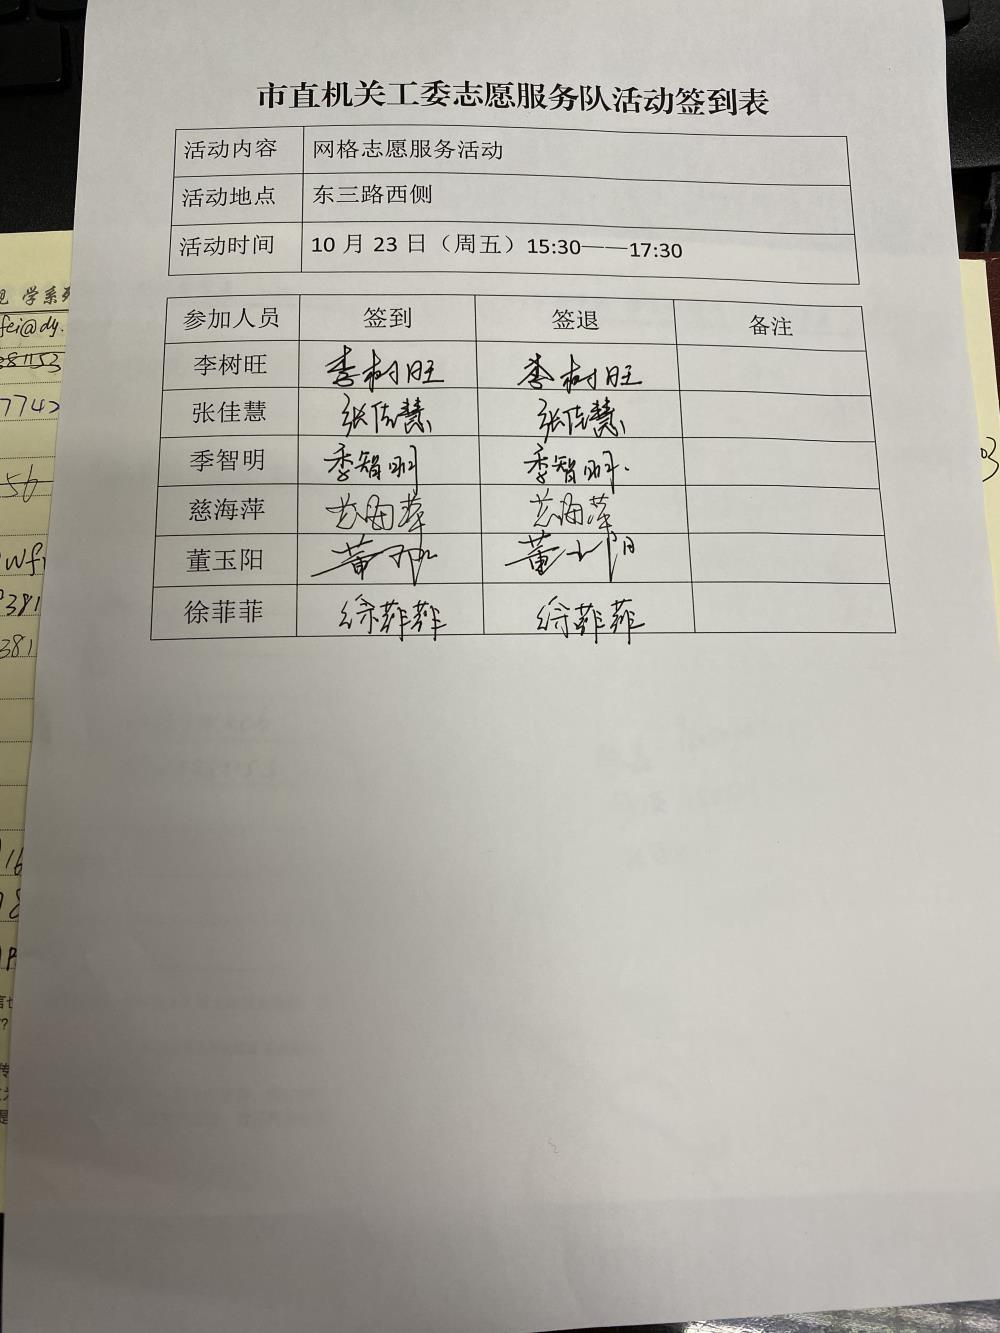 市直机关工委志愿服务队活动签到表
活动内容 网格志愿服务活动
活动地点 东三路西侧
活动时间 10月23日（周五）15:30——17:30
参加人员 签到 签退 备注
李树旺 李树旺 李树旺
张佳慧 张佳慧 张佳慧
季智明 季智明 季智明.
慈海萍 慈海萍 慈海萍
董玉阳 董玉阳 董玉阳
徐菲菲 徐菲菲 徐菲菲
学系列
fei@dy.
381153
7742
56
381
381
16
03